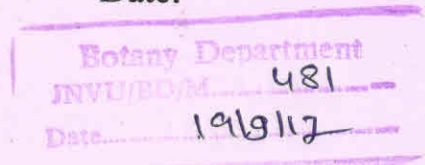 Date:
Botany Department
JNVU/BD/M.......... 481
Date.......... 19/9/12